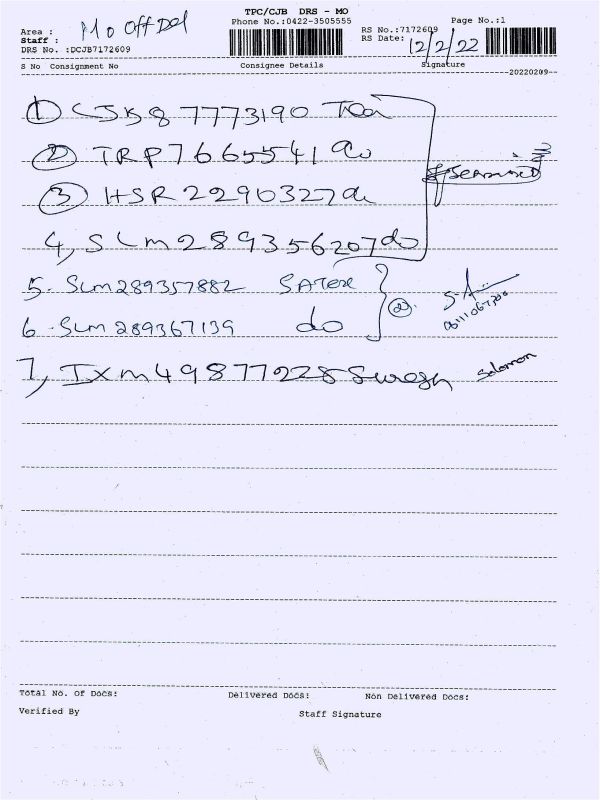 TPC/CJB DRS - MO
Area : Mo Off Del Phone No.:0422-3505555 RS No.:7172609 Page No.:1
Staff : RS Date: 12/2/22
DRS No. :DCJB7172609
S No Consignment No Consignee Details Signature
20220209
1 CJB87773190
2 TRP7665541 do
3 HSR2290327 do
4, SLM289356207 do
5. SLM289357882
6. SLM289367139 do 2
7, IXM49877228 Suresh Solomon
Total No. Of Docs: Delivered Docs: Non Delivered Docs:
Verified By Staff Signature